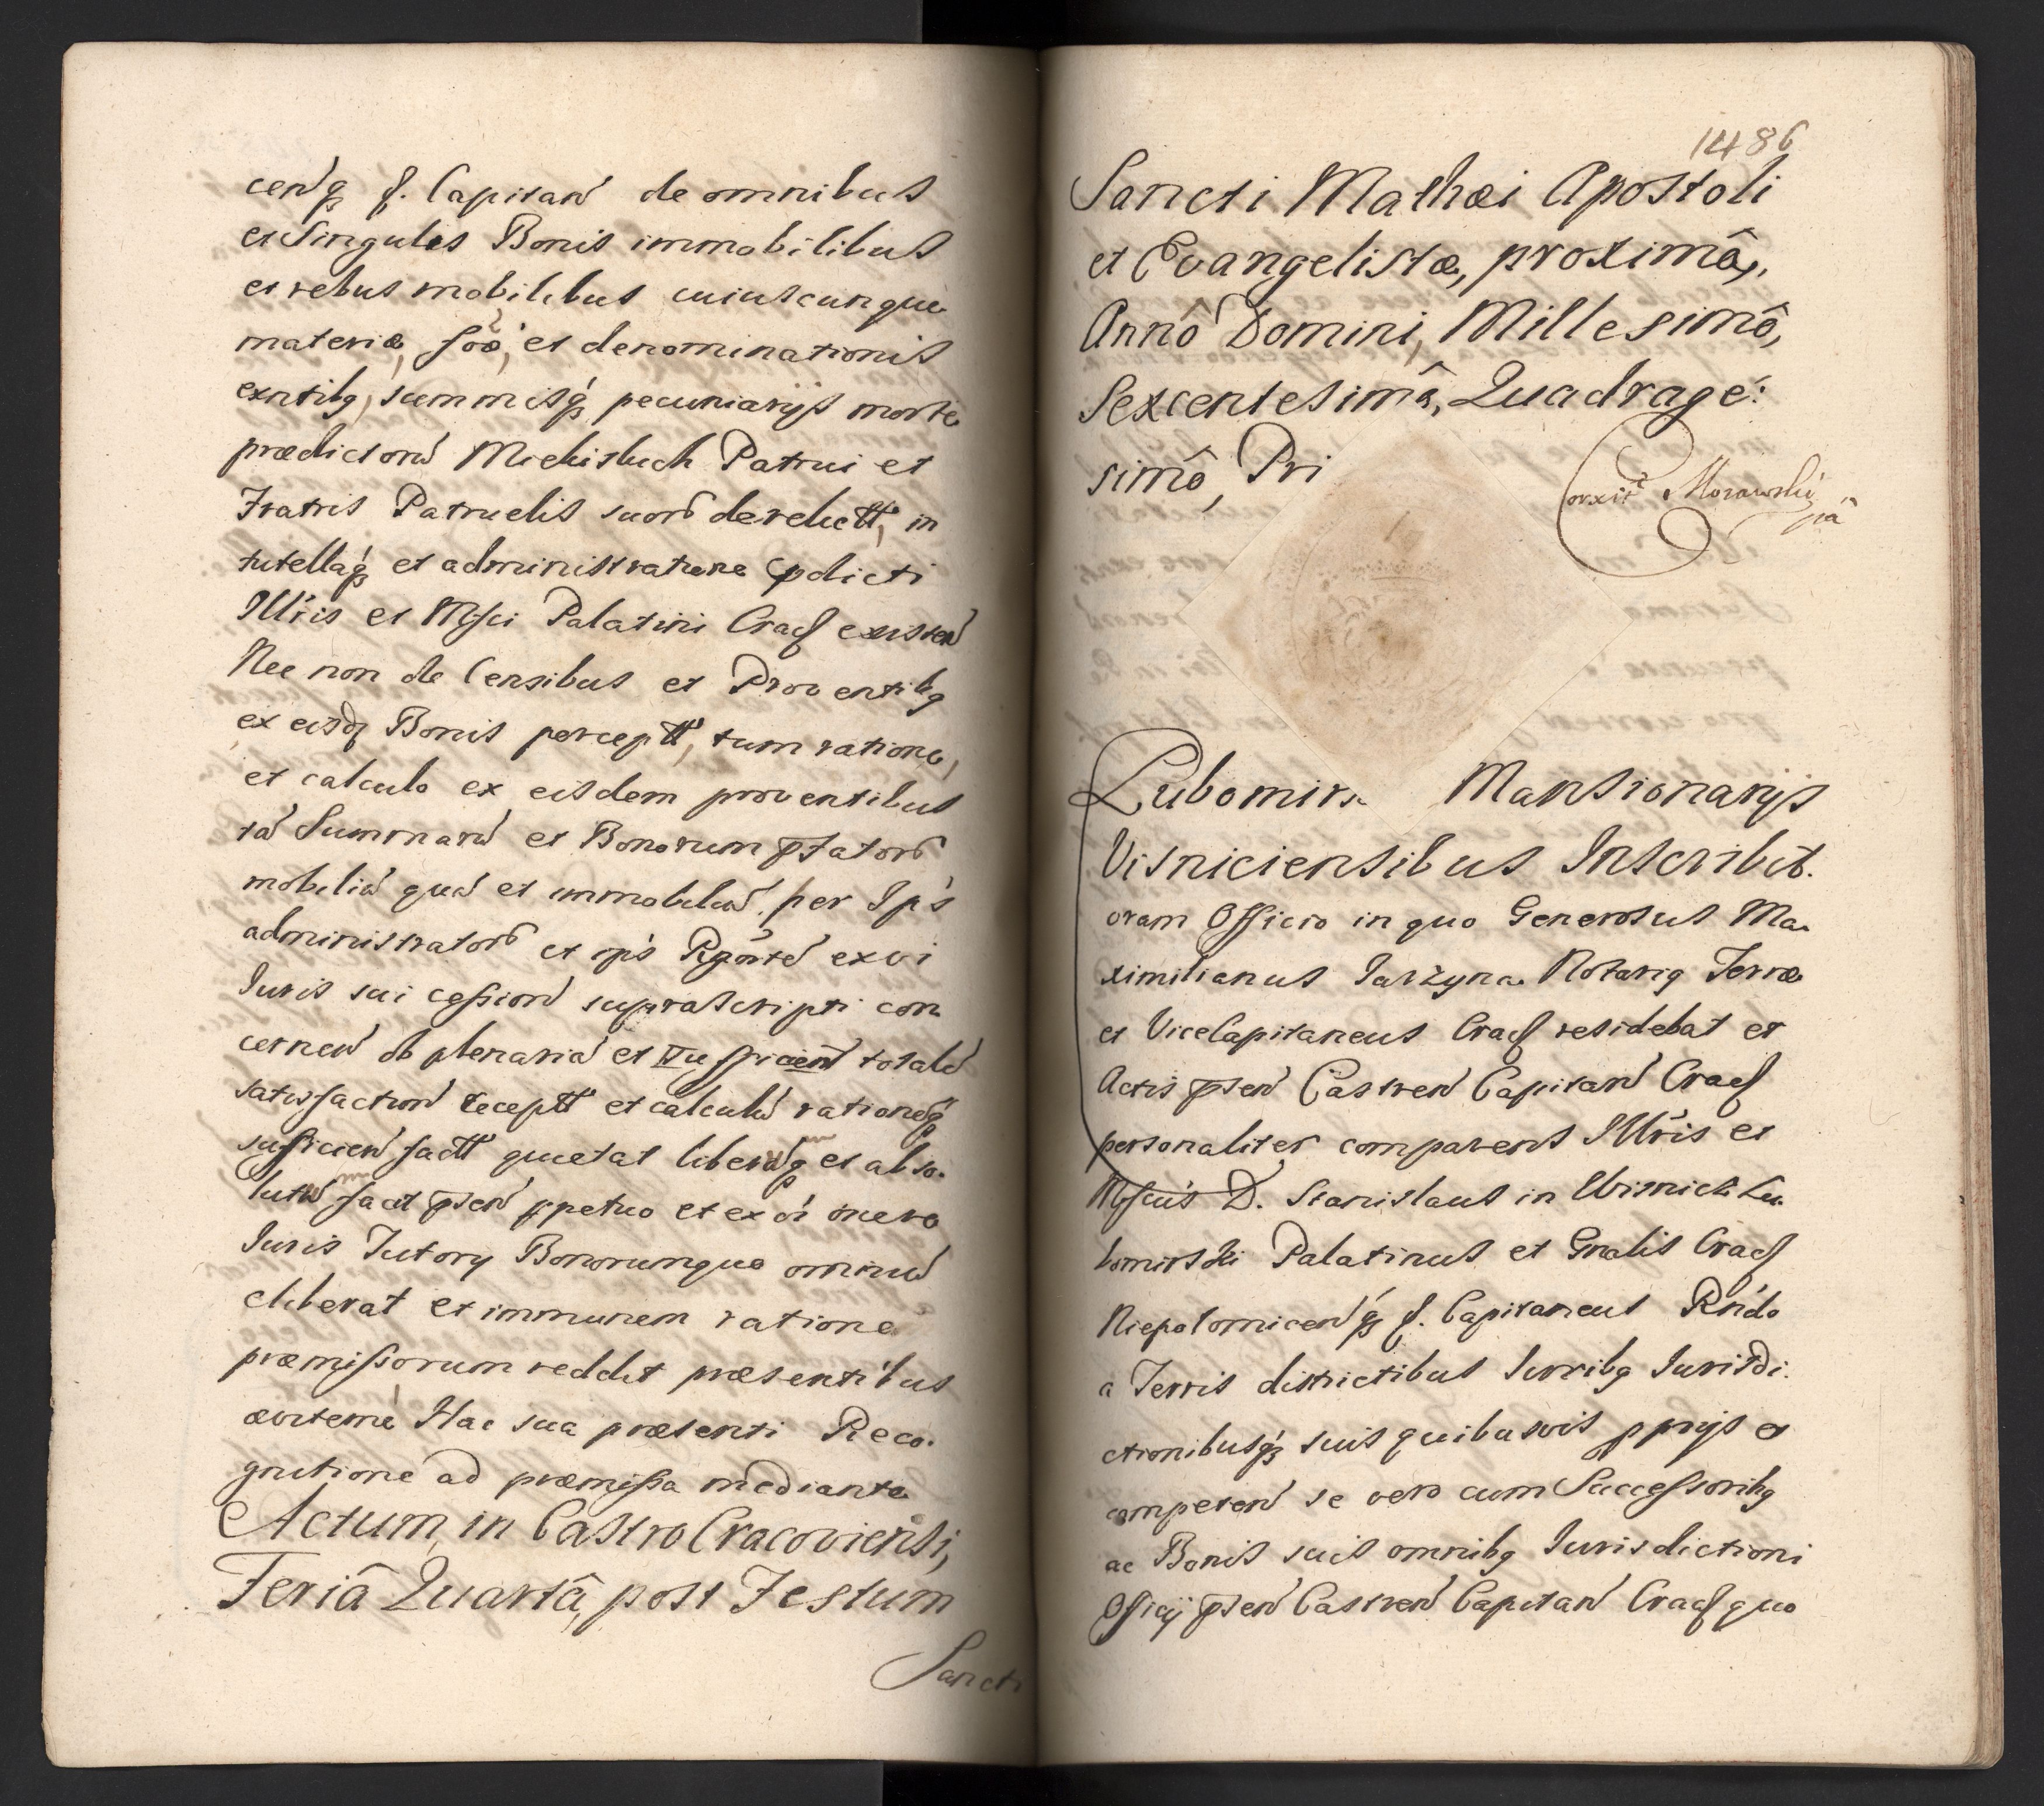 cenq₃ f. Capitan de omnibus
et Singulis Bonis immobilibus
et rebus mobilibus cuiuscunque
materiæ, et denominationis
exntibq, summisq₃ pecuniarijs morte
prædictoru Patrui et
Fratris Patruelis suoru derelictt, in
tutellaq₃ et administratione pdicti
Illris et Mfci Palatini Cracf existen
Nec non de Censibus et Proventibq
ex eisdq Bonis perceptt, tum ratione,
et calculo ex eisdem proventibus
ta Summaru et Bonorum
mobiliu qua et immobiliu per Ips
administrator et ips exvi
Iuris sui cession suprascripti con
cernen ob plenaria et totale
satisfaction receptt et calculu rationeq₃
sufficien factt quietat liberumq et abso.
lutum facit psen ppetuo et ex oi onere
Iuris Tutory Bonorumque omniu
eliberat et immunem ratione
præmissorum reddit præsentibus
æviterne Hac sua præsenti Reco.
gnitione ad præmissa mediante
Actum, in Castro Cracoviensi,
Feriâ Quartâ, post Festum
Sancti
1486
Sancti Mathæi Apostoli
et Evangelistæ, proximâ,
Annô Domini, Millesimô,
Sexcentesimô, Quadrage:
simô, Pri
Corxit Morawski
Lubomirs Mansionarijs
Visniciensibus Inscribit.
oram Officio in quo Generosus Ma.
ximilianus Jarzyna Notariq Terræ
et ViceCapitaneus Cracf residebat et
Actis psen Castren Capitan Cracf
personaliter comparens Illris et
Mfcus D. Stanislaus in Wisnicz Lu.
bomirski Palatinus et Gnalis Cracf
Niepolomicenq₃ f. Capitaneus Rndo
a Terris districtibus Iurribq Iurisdi.
ctionibusq₃ suis quibusvis pprijs et
competen se vero cum Successoribq
ac Bonis suis omnibq Iurisdictioni
Officij psen Castren Capitan Cracf quo